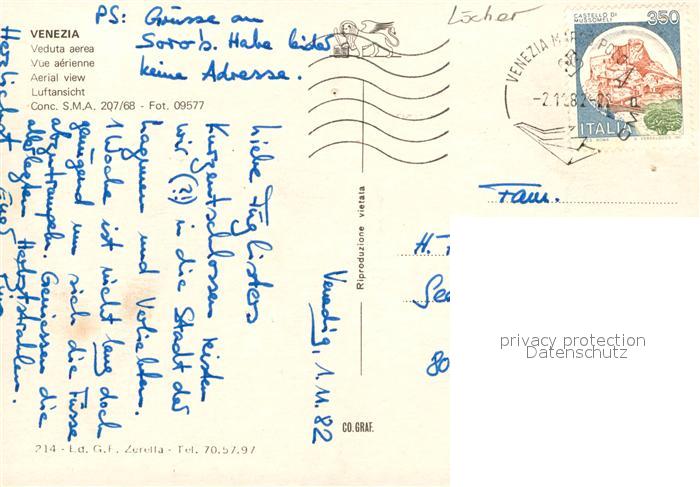 PS: Grüsse an
Sorob's. Habe leider
keine Adresse.
Löcher
VENEZIA
Veduta aerea
Vue aérienne
Aerial view
Luftansicht
Conc. S.M.A. 207/68 - Fot. 09577
CASTELLO DI
MUSSOMELI
350
ITALIA
VENEZIA
Venedig, 1.11.82
Liebe Füglisters
Kurzentschlossen reisten
wir (?!) in die Stadt der
Lagunen und Verliebten.
1 Woche ist nicht lang doch
genügend um sich die Füsse
abzutrampeln. Geniessen die
Herbststrahlen.
Herzlichst
Fam.
H.
See
80
Riproduzione vietata
CO. GRAF.
214 - Ed. G.F. Zerella - Tel. 70.57.97
privacy protection
Datenschutz